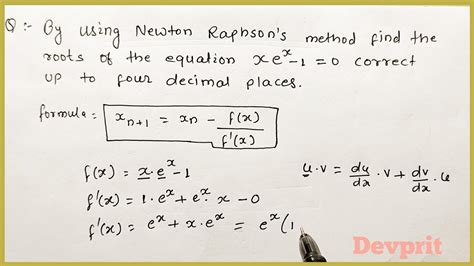 Q:- By using Newton Raphson's method find the
roots of the equation xeˣ-1=0 correct
up to four decimal places.
formula:- xₙ₊₁ = xₙ - f(x)/f'(x)
f(x) = x·eˣ-1
u·v = du/dx · v + dv/dx · u
f'(x) = 1·eˣ + eˣ· x - 0
f'(x) = eˣ + x·eˣ = eˣ(1
Devprit